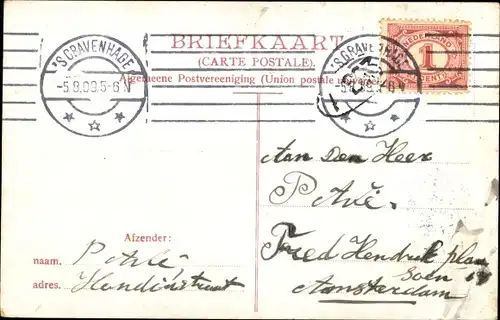 BRIEFKAART
(CARTE POSTALE).
Algemeene Postvereeniging (Union postale universelle)
'SGRAVENHAGE
-5.8.09.5-6 N
'SGRAVENHAGE
-5.8.09.5-6 N
NEDERLAND
1
CENT
Aan Den Heer
P Avé.
Fred Hendrik plan
soen
Amsterdam
Afzender:
naam. P Avé
adres.